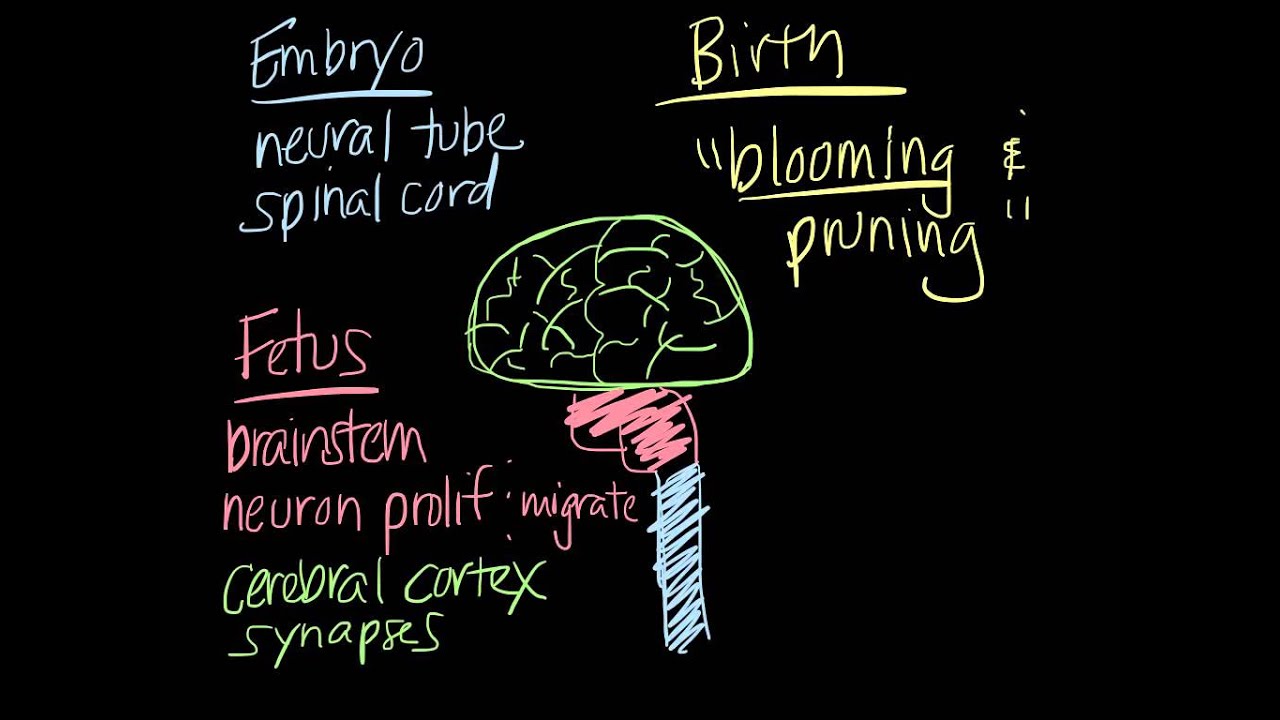 Embryo
neural tube
spinal cord
Fetus
brainstem
neuron prolif : migrate
cerebral cortex
synapses
Birth
"blooming &
pruning"